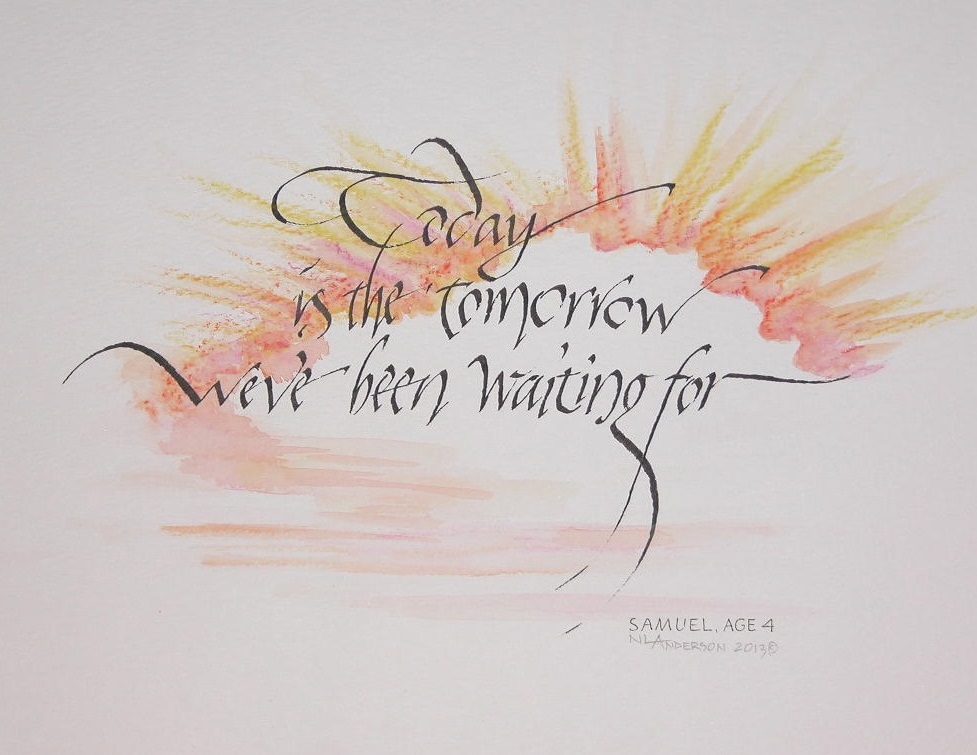 Today
is the tomorrow
we've been waiting for
SAMUEL, AGE 4
NLANDERSON 2013©